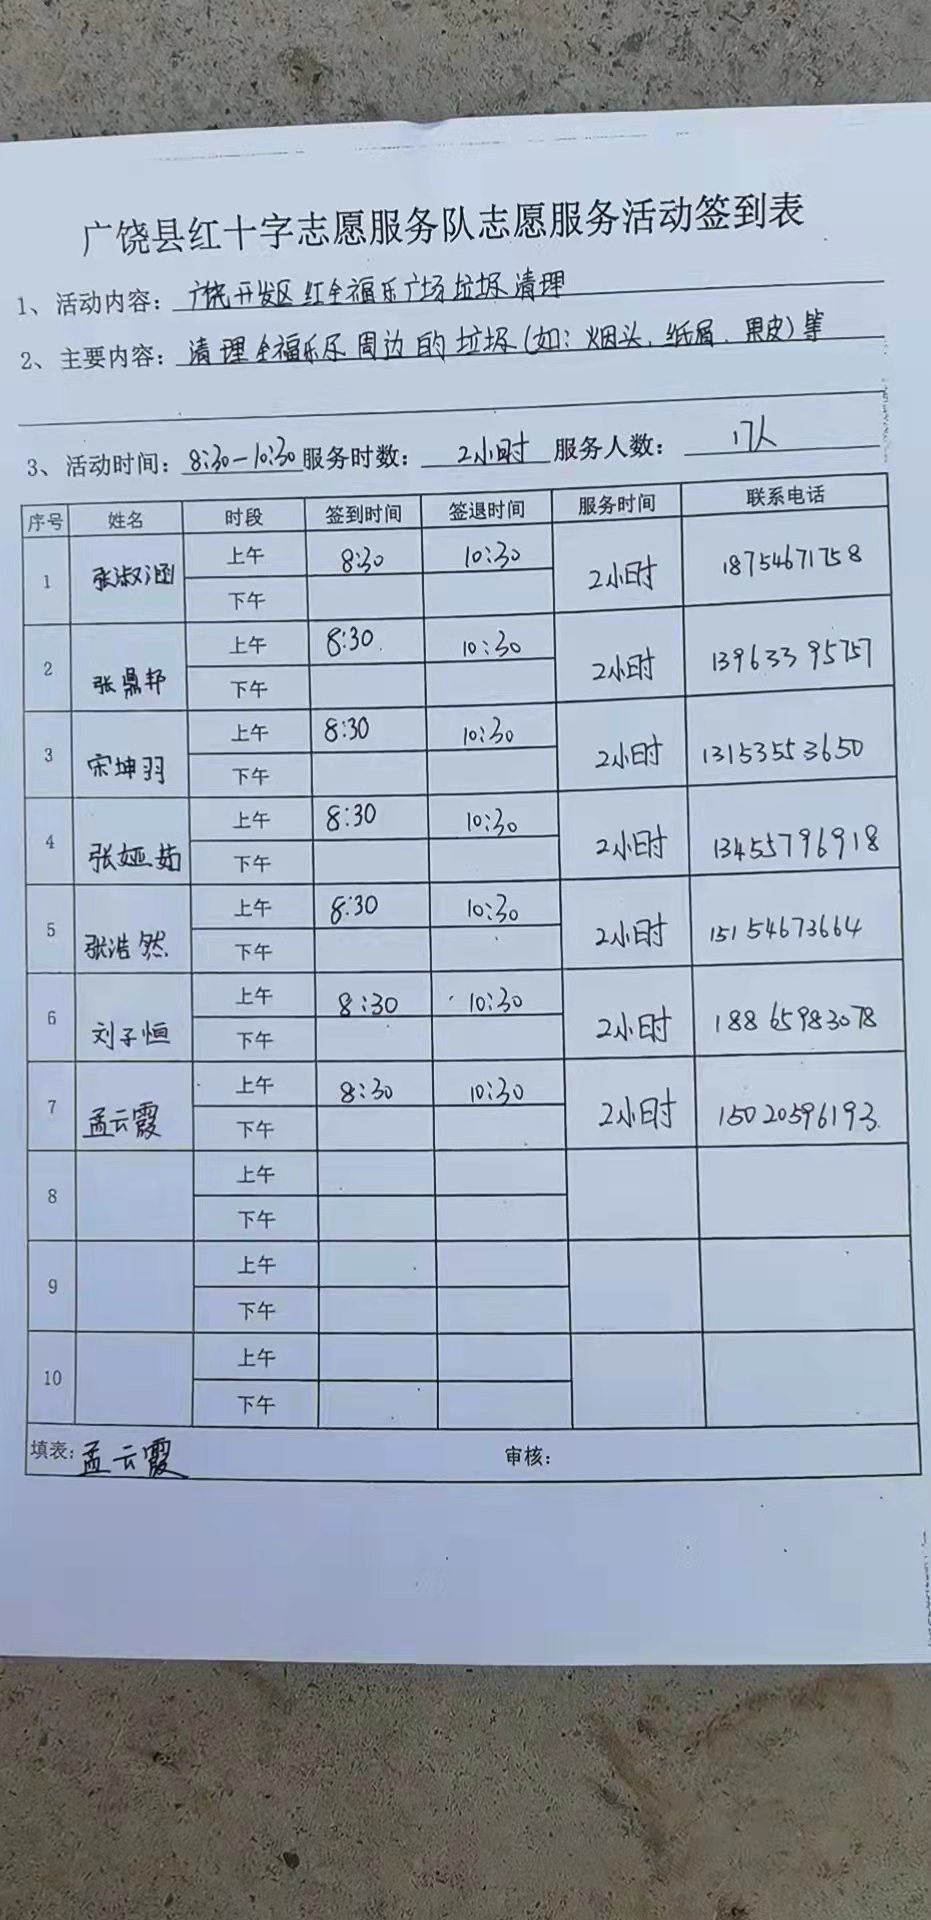 广饶县红十字志愿服务队志愿服务活动签到表
1、活动内容：广饶开发区红全福乐广场垃圾清理
2、主要内容：清理全福乐尽周边的垃圾(如：烟头、纸屑、果皮)等
3、活动时间：8:30-10:30 服务时数：2小时 服务人数：17人
序号 姓名 时段 签到时间 签退时间 服务时间 联系电话
1 张淑涵 上午 8:30 10:30 2小时 18754671758
下午
2 张鼎邦 上午 8:30 10:30 2小时 13963395757
下午
3 宋坤羽 上午 8:30 10:30 2小时 13153553650
下午
4 张娅茹 上午 8:30 10:30 2小时 13455796918
下午
5 张浩然 上午 8:30 10:30 2小时 15154673664
下午
6 刘子恒 上午 8:30 10:30 2小时 18865983078
下午
7 孟云霞 上午 8:30 10:30 2小时 15020596193
下午
8 上午
下午
9 上午
下午
10 上午
下午
填表：孟云霞 审核：